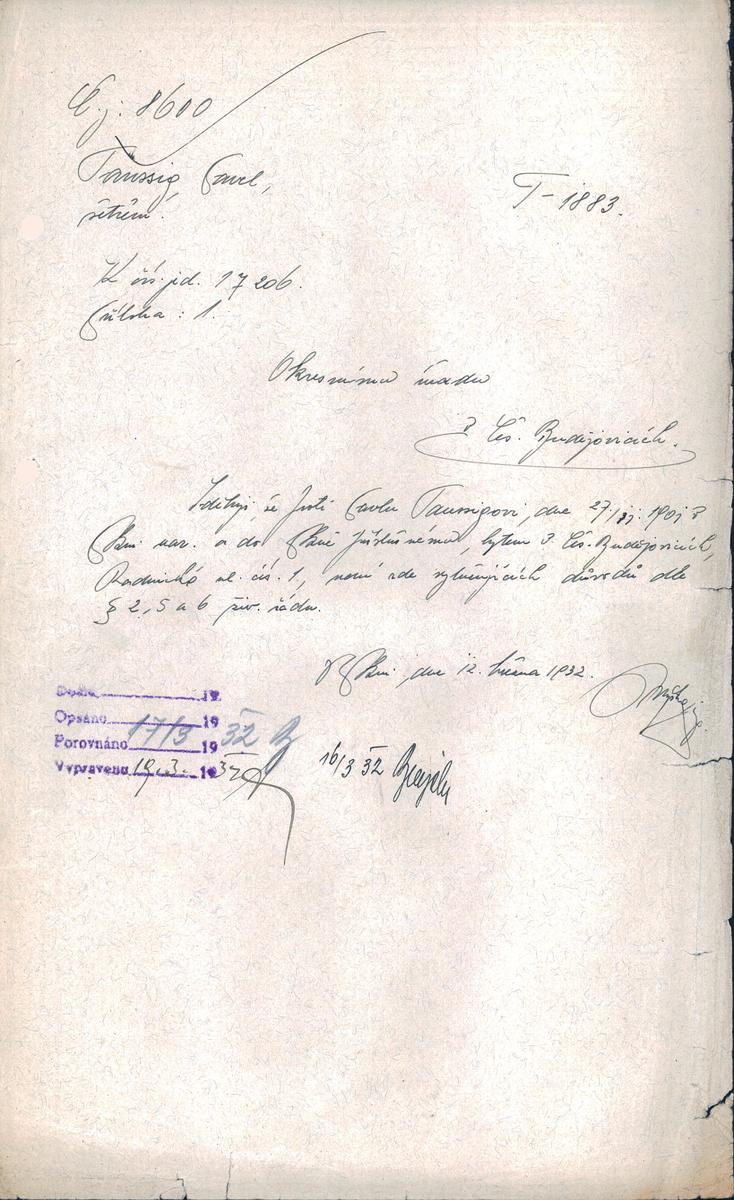 Č.j: 8600
Taussig Pavel,
šetření.
T-1883.
K čís. jd. 17206.
Příloha: 1.
Okresnímu úřadu
v Čes. Budějovicích.
Sděluji, že proti Pavlu Taussigovi, dne 1901 v
Brně nar. a do Brně příslušnému, bytem v Čes. Budějovicích,
Radnická ul. čís. 1, není zde vylučujících důvodů dle
§ 2, 5 a 6 živ. řádu.
V Brně, dne 12. března 1932.
Došlo 19
Opsáno 19
Porovnáno 17/3 19 32
Vypraveno 19.3. 19 32
16/3 32